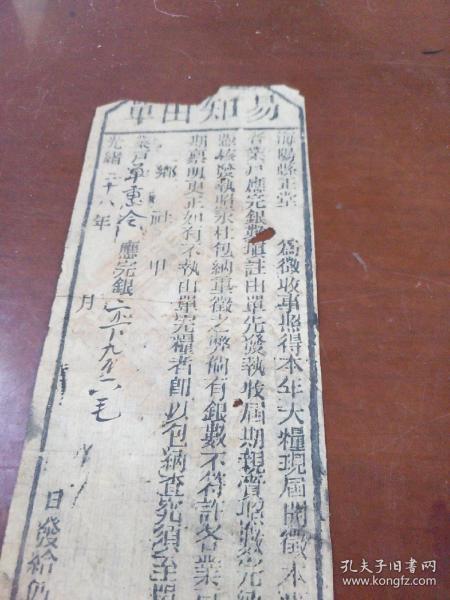 易知由單
海陽縣正堂 為徵收事照得本年大糧現屆開徵
各業戶應完銀數填註由單先發執收屆期親賫照數完納
發執照永杜包納重徵之弊倘有銀數不符許各業
期稟明更正如有不執由單完糧者即以包納查究須至
鄉 社 甲
業戶 應完銀 九 六毛
光緒二十八年 月 日發給
孔夫子旧书网
www.kongfz.com